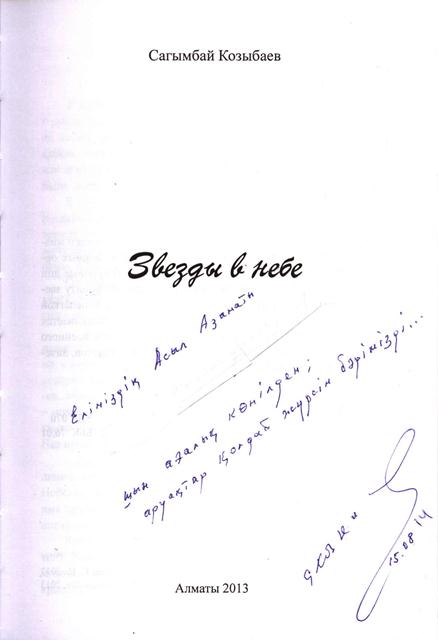 Сагымбай Козыбаев
Звезды в небе
Еліміздің Асыл Азаматы
шын ағалық көңілден;
аруақтар қолдап жүрсін бәрімізді...
15.08.14
Алматы 2013